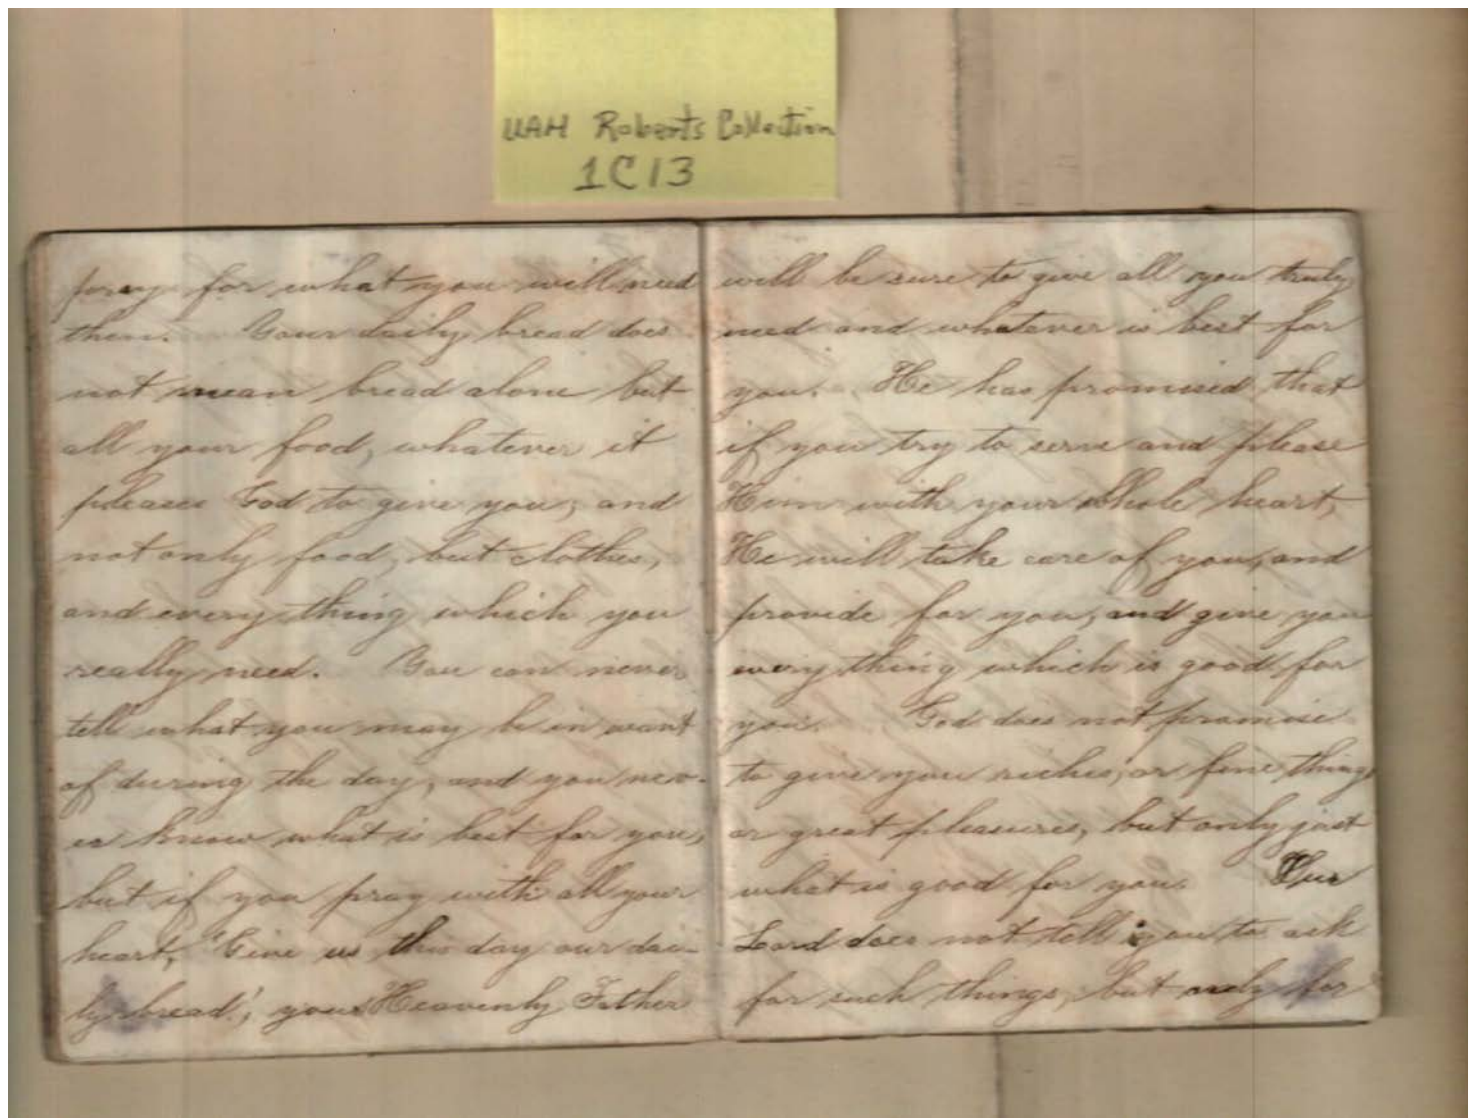 UAH Roberts Collection
1C13
pray for what you will need
then. Your daily bread does
not mean bread alone but
all your food, whatever it
pleases God to give you, and
not only food, but clothes,
and every thing which you
really need. You can never
tell what you may be in want
of during the day, and you nev-
er know what is best for you,
but if you pray with all your
heart, "Give us this day our dai-
ly bread", your Heavenly Father
will be sure to give all you truly
need and whatever is best for
you. He has promised that
if you try to serve and please
Him with your whole heart,
He will take care of you, and
provide for you, and give you
every thing which is good for
you. God does not promise
to give you riches, or fine things
or great pleasures, but only just
what is good for you. Our
Lord does not tell you to ask
for such things, but only for